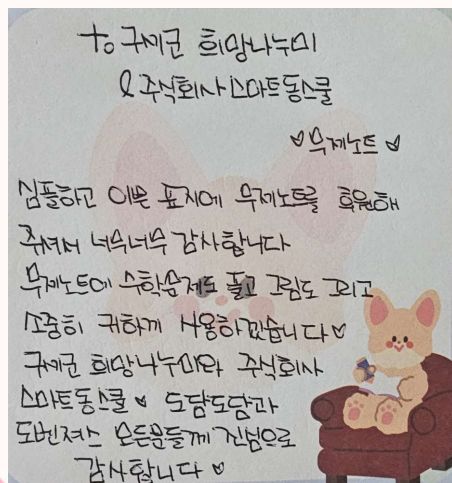 to 구세군 희망나누미
& 주식회사 스마트동스쿨
♥무제노트♥
심플하고 이쁜 표지에 무제노트를 후원해
주셔서 너무너무 감사합니다
무제노트에 수학문제도 풀고 그림도 그리고
소중히 귀하게 사용하겠습니다♥
구세군 희망나누미와 주식회사
스마트동스쿨♥ 도담도담과
도번져스 모든분들께 진심으로
감사합니다♥